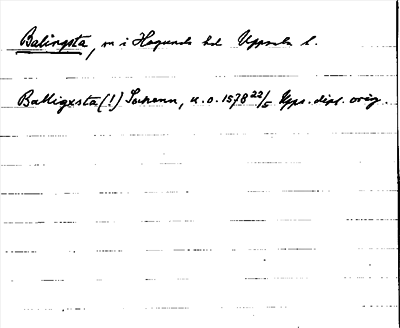 Balingsta, sn i Hagunda hd Uppsala l.
Balligxsta (!) Sochenn, u. o. 1578 22/5 Upps. dipl. orig.